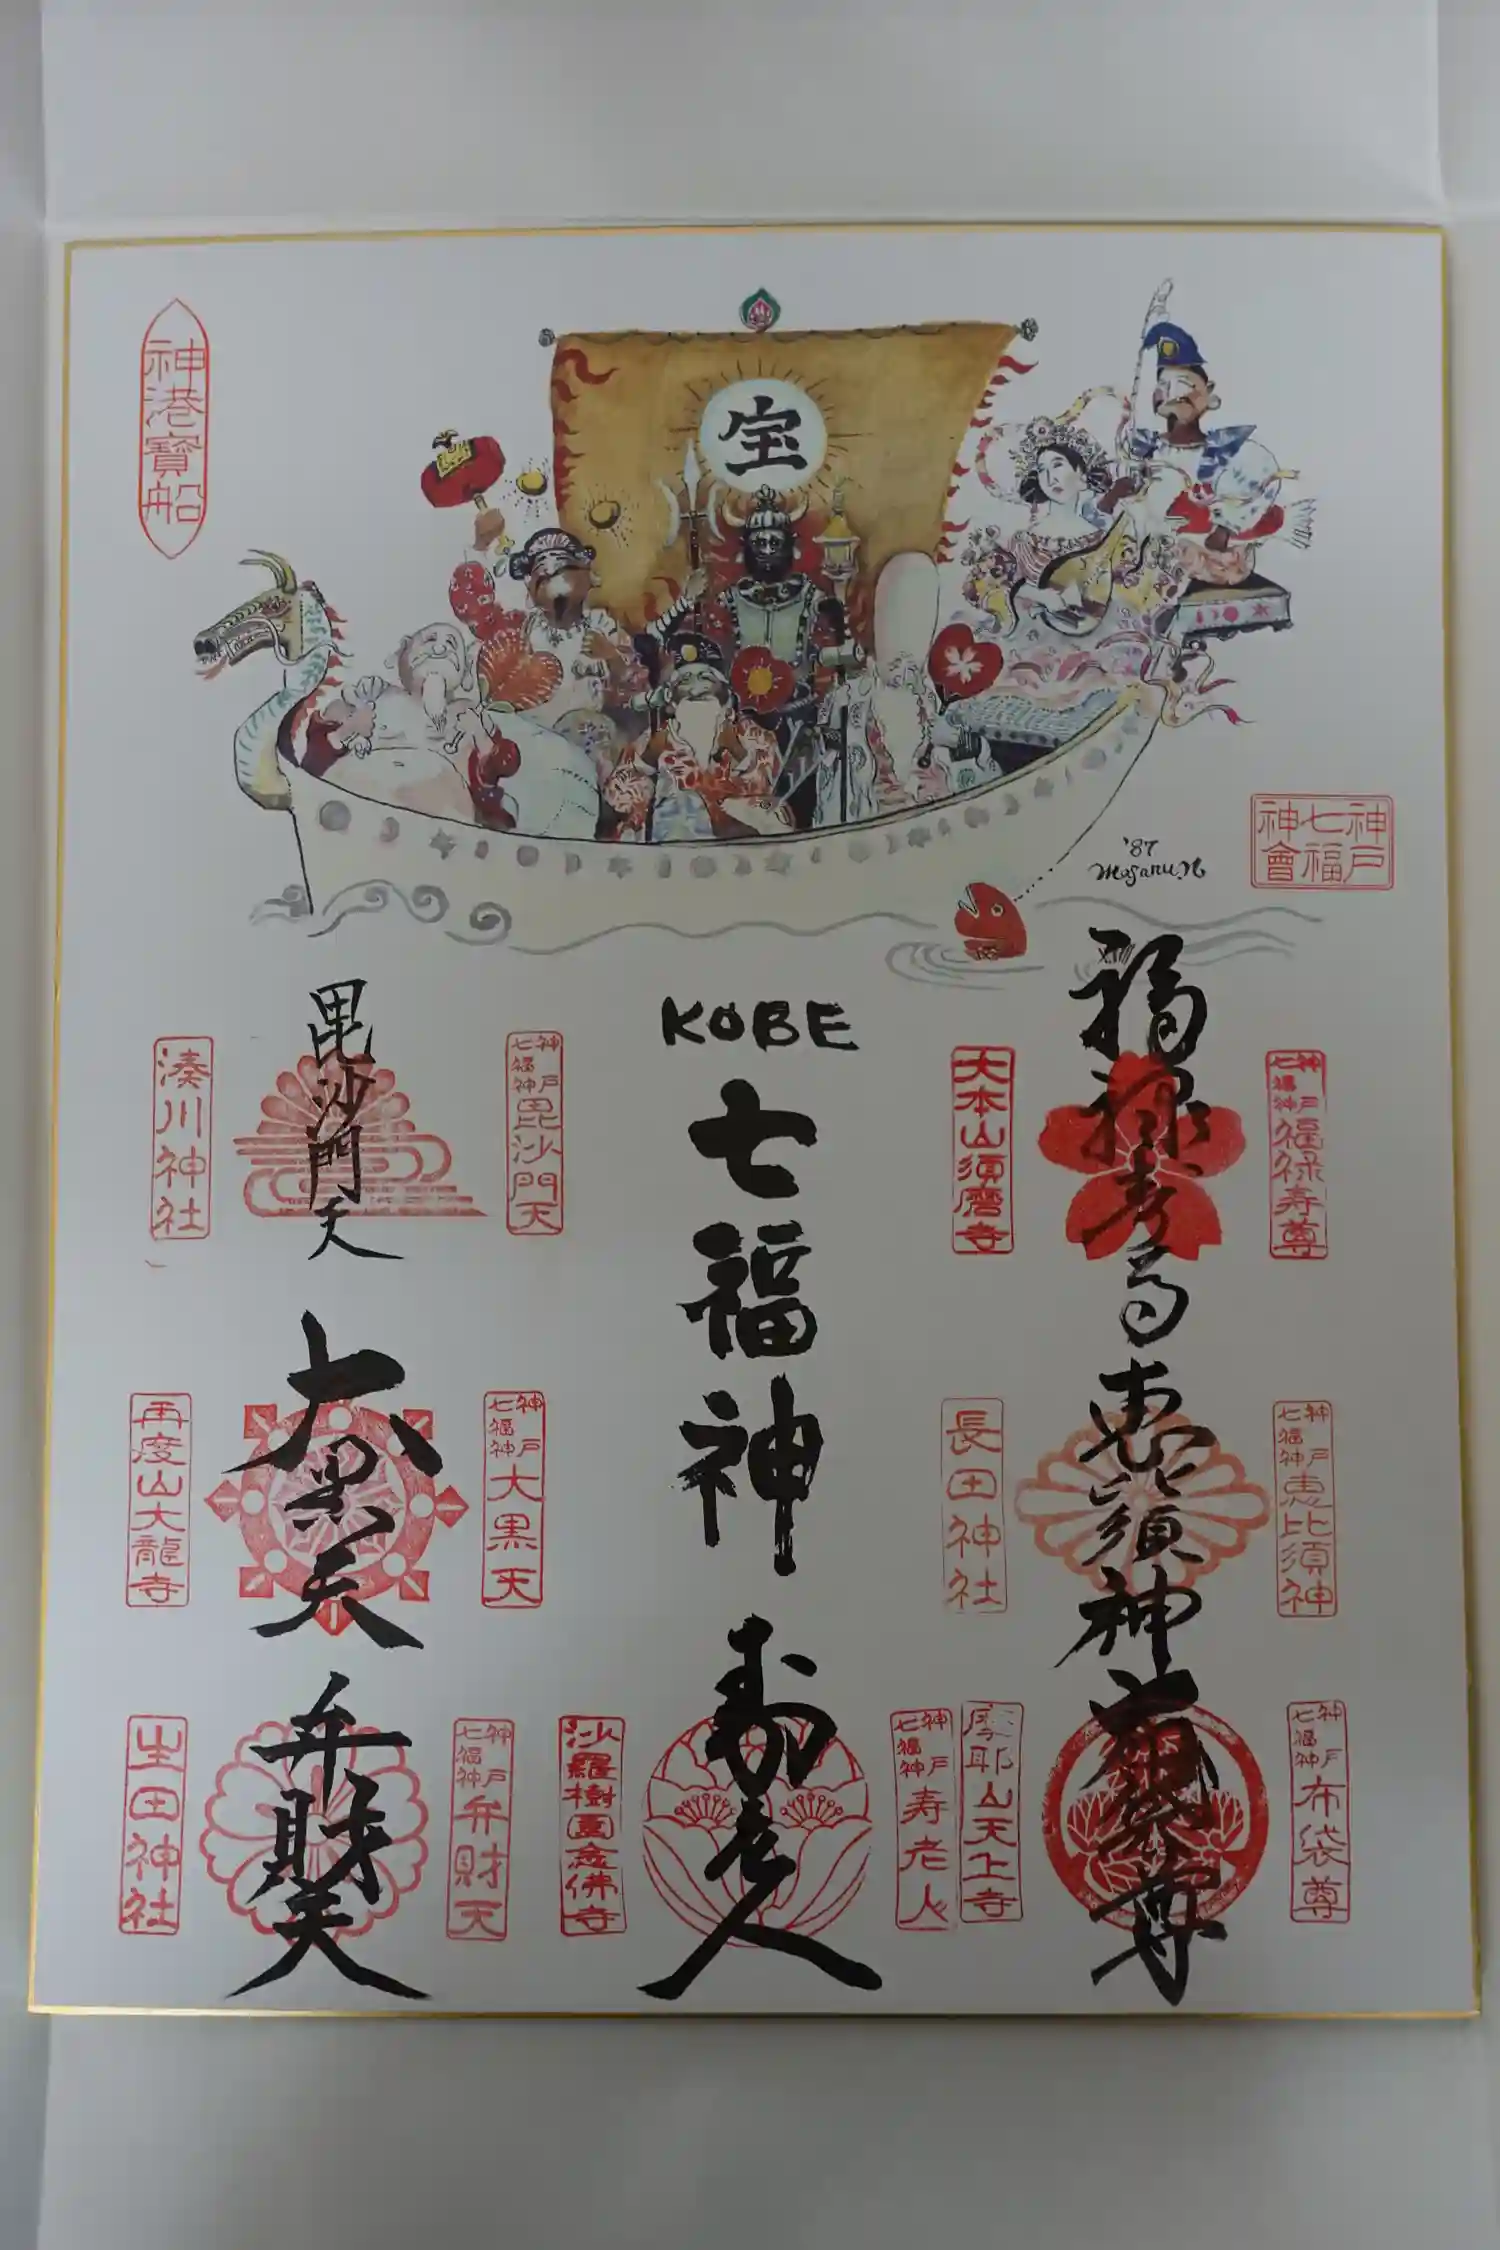 神港寳船
宝
'87
Masaru.N
神戸七福神會
KOBE
七福神
神戸七福神福禄寿尊
福禄寿尊
大本山須磨寺
神戸七福神毘沙門天
毘沙門天
湊川神社
神戸七福神恵比須神
恵比須神
長田神社
神戸七福神大黒天
大黒天
再度山大龍寺
神戸七福神布袋尊
布袋尊
摩耶山天上寺
神戸七福神寿老人
寿老人
沙羅樹園念佛寺
神戸七福神弁財天
弁財天
生田神社